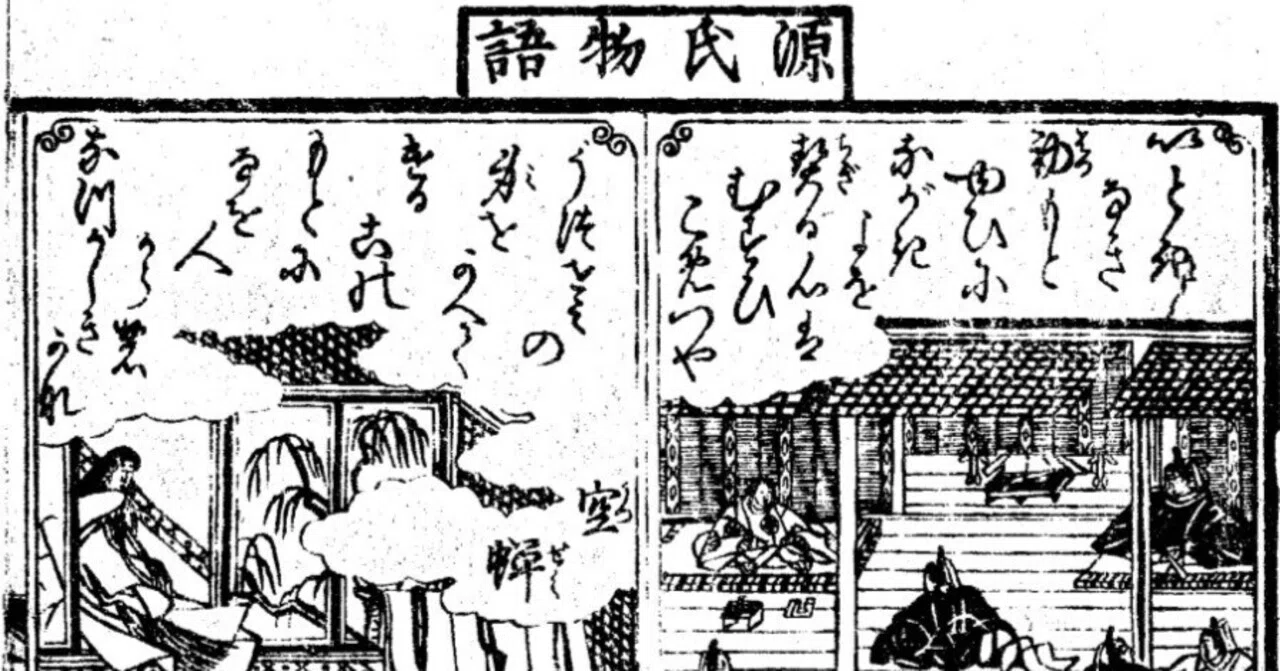 源氏物語
いとき
なき
初もと
ゆひに
ながき
よを
契る心は
むすひ
こめつや
うつせみ
の
身を
かへて
ける
この
もとに
なを
人
がらの
なつかしき
かな
空
蝉